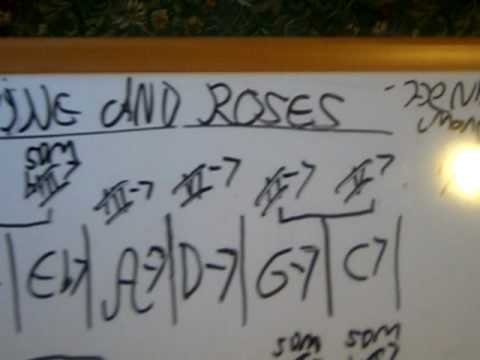 INE AND ROSES - HEN
MAN
SDM
bVII7 III-7 VI-7 II-7 V7
| Eb7 | A-7 | D-7 | G-7 | C7 |
SDM SDM